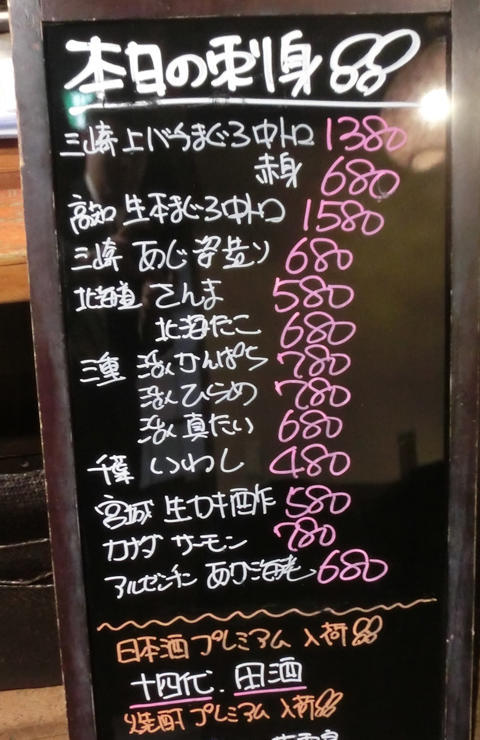 本日の刺身!!
三崎 上バチまぐろ中トロ 1380
赤身 680
高知 生本まぐろ中トロ 1580
三崎 あじ姿造り 680
北海道 さんま 580
北海たこ 680
三重 活〆かんぱち 780
活〆ひらめ 780
活〆真たい 680
千葉 いわし 480
宮城 生カキ酒作 580
カナダ サーモン 780
アルゼンチン あかえび 680
日本酒プレミアム入荷!!
十四代. 田酒
焼酎プレミアム入荷!!